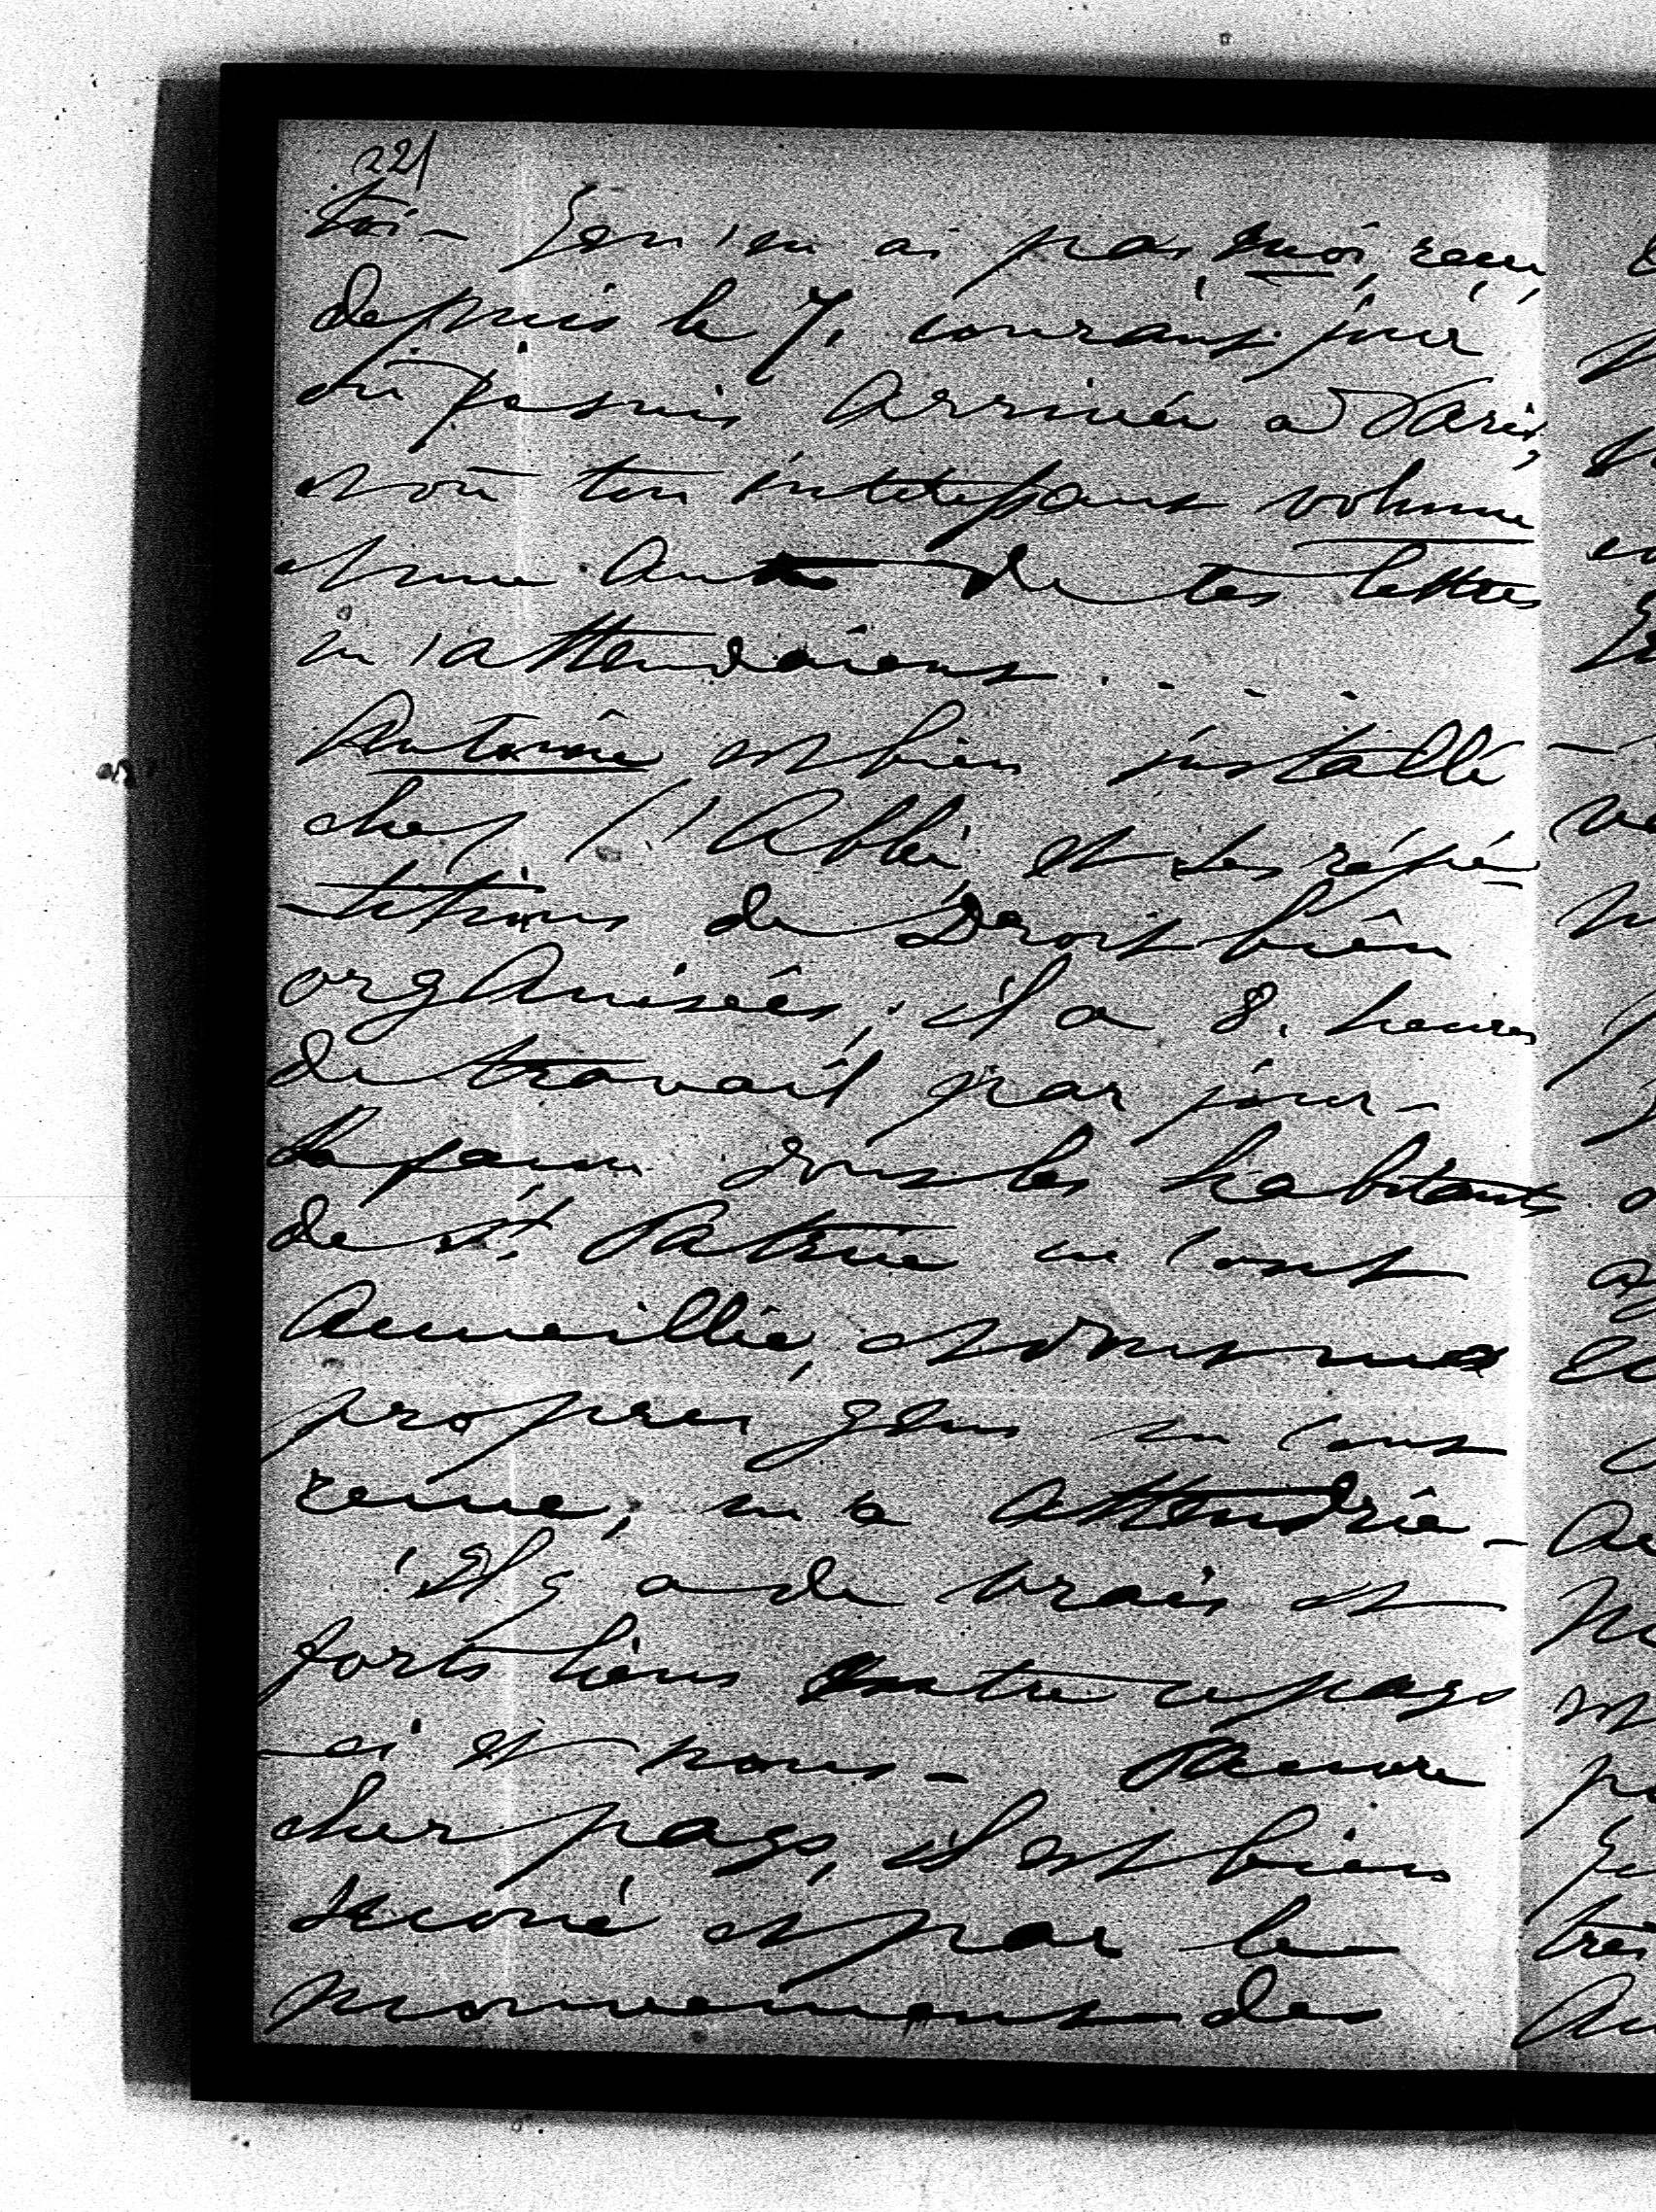 221
toi – Je n'en ai pas, moi, reçu,
depuis le 7, courant, jour
où je suis Arrivée à Paris,
et où ton intéressant volume
et une Autre de tes lettres
m'attendaient . . . .
Antoine est bien installé
chez l'Abbé, et ses répé-
-titions de Droit bien
organisées; il a 8. heures
de travail par jour –
La façon dont les habitants
de St. Patrice m'ont
Accueillie, et dont mes
propres gens m'ont
reçue, m'a Attendrie –
Il y a de vrais et
forts liens Entre ce pays
-ci et nous – Pauvre
cher pays, il est bien
secoué et par le
mouvement des